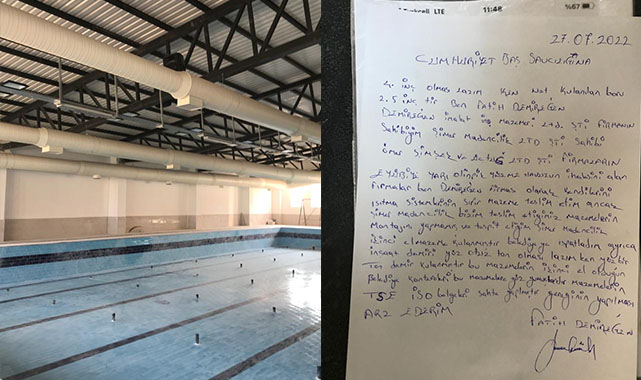 LTE 11:48 %67
27.07.2022
CUMHURİYET BAŞ SAVCILIĞINA
4. inç olması lazım iken Not kulanılan boru
2.5 inç tir Ben FATİH DEMİREĞEN
DEMİREĞEN inşaat ve mazemei Ltd. ŞTİ FİRMANIN
Sahibiyim Şimşe Madencilik LTD ŞTİ Sahibi
ömer ŞİMŞEK ve LTD ŞTİ FİRMALARIN
EYÜBİYE YARI olimpik yüzme havuzun ihalesini alan
firmalar ben Demireğen firması olarak kendilerine
ısıtma sistemlerinin sıfır mazeme teslim etim ancak
Şimşe Madencilik bizim teslim etiğimiz mazemelerin
Montajın yapmamış ve tespit etiğim Şimşe Madencilik
ikinci el mazeme kulanmıştır belediyeye ispatladım ayrıca
inşaat demiri yüz otuz ton olması lazım ken yüz bir
Ton demir kulanmıştır bu mazemelerin ikinci el olduğun
Belediye kontrolleri bu mazemelere göz yumuşlardır mazemelerin
TSE İSO belgeleri sahte gereğinin yapılması
ARZ EDERİM
FATİH DEMİREĞEN